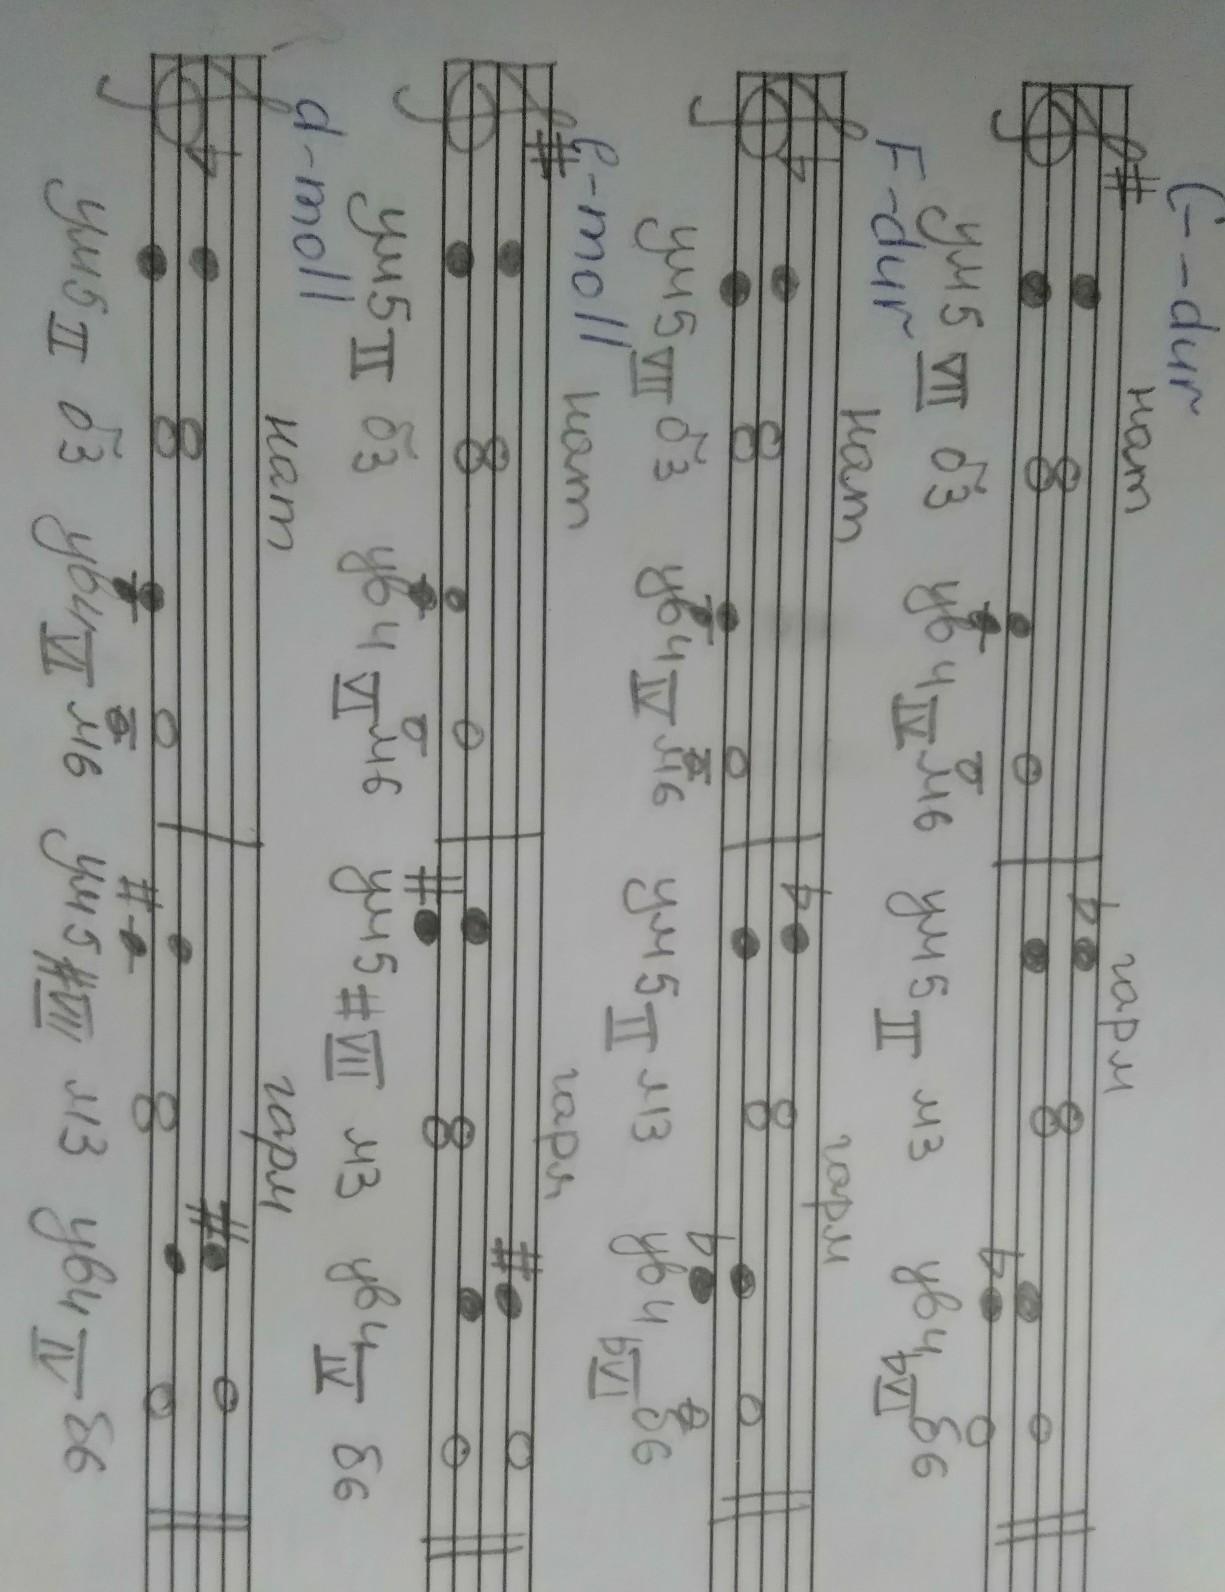 G-dur нат гарм
ум5 VII б3 ув4 IV м6 ум5 II м3 ув4 bVI б6
F-dur нат гарм
ум5 VII б3 ув4 IV м6 ум5 II м3 ув4 bVI б6
e-moll нат гарм
ум5 II б3 ув4 VI м6 ум5 #VII м3 ув4 IV б6
d-moll нат гарм
ум5 II б3 ув4 VI м6 ум5 #VII м3 ув4 IV б6